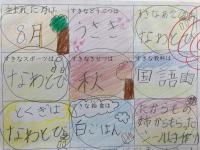 うまれた月は
すきなどうぶつは
すきなあそびは
8月
うさぎ
なわとび
すきなスポーツは
すきなきせつは
すきな教科は
なわとび
秋
国語
とくぎは
すきな給食は
たからもの
なわとび
白ごはん
姉からもらった